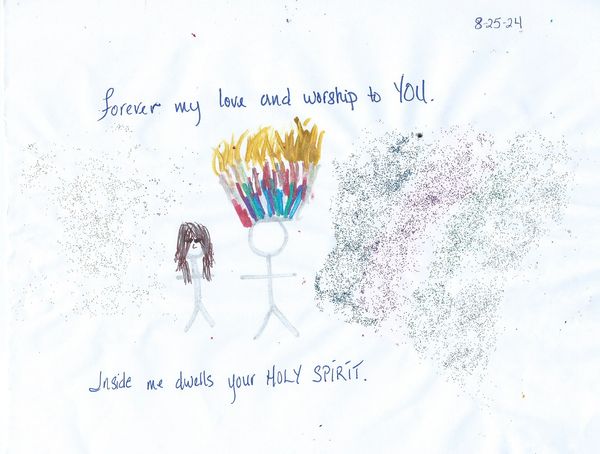 8-25-24
forever my love and worship to YOU.
Inside me dwells your HOLY SPIRIT.